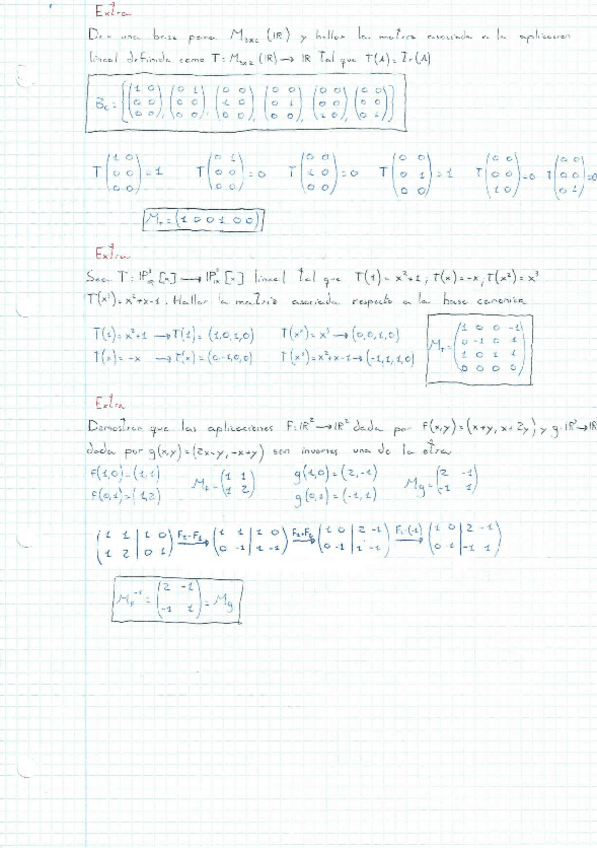 Extra
Dar una base para M₃ₓ₂(ℝ) y hallar la matriz asociada a la aplicacion
lineal definida como T: M₃ₓ₂(ℝ) → ℝ tal que T(A) = Tr(A)
B_c = {(1 0 / 0 0 / 0 0), (0 1 / 0 0 / 0 0), (0 0 / 1 0 / 0 0), (0 0 / 0 1 / 0 0), (0 0 / 0 0 / 1 0), (0 0 / 0 0 / 0 1)}
T(1 0 / 0 0 / 0 0) = 1 T(0 1 / 0 0 / 0 0) = 0 T(0 0 / 1 0 / 0 0) = 0 T(0 0 / 0 1 / 0 0) = 1 T(0 0 / 0 0 / 1 0) = 0 T(0 0 / 0 0 / 0 1) = 0
M_T = (1 0 0 1 0 0)
Extra
Sea T: [x] → [x] lineal tal que T(1) = x²+1, T(x) = -x, T(x²) = x³
T(x³) = x²+x-1. Hallar la matriz asociada respecto a la base canonica
T(1) = x²+1 → T(1) = (1,0,1,0) T(x²) = x³ → (0,0,1,0)
T(x) = -x → T(x) = (0,-1,0,0) T(x³) = x²+x-1 → (-1,1,1,0)
M_T = (1 0 0 -1 / 0 -1 0 1 / 1 0 1 1 / 0 0 0 0)
Extra
Demostrar que las aplicaciones F: ℝ² → ℝ² dada por F(x,y) = (x+y, x+2y) y g: ℝ² → ℝ
dada por g(x,y) = (2x-y, -x+y) son inversas una de la otra
F(1,0) = (1,1) M_F = (1 1 / 1 2) g(1,0) = (2,-1) M_g = (2 -1 / -1 1)
F(0,1) = (1,2) g(0,1) = (-1,1)
(1 1 | 1 0 / 1 2 | 0 1) → (1 1 | 1 0 / 0 -1 | 1 -1) → (1 0 | 2 -1 / 0 -1 | 1 -1) → (1 0 | 2 -1 / 0 1 | -1 1)
M_F⁻¹ = (2 -1 / -1 1) = M_g